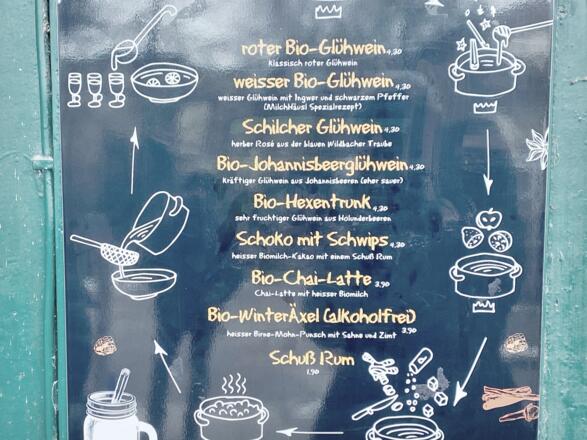 roter Bio-Glühwein 4,30
Klassisch roter Glühwein
weisser Bio-Glühwein 4,30
weisser Glühwein mit Ingwer und schwarzem Pfeffer
(MilchHäusl Spezialrezept)
Schilcher Glühwein 4,30
herber Rosé aus der blauen Wildbacher Traube
Bio-Johannisbeerglühwein 4,30
Kräftiger Glühwein aus Johannisbeeren (eher sauer)
Bio-Hexentrunk 4,30
sehr fruchtiger Glühwein aus Holunderbeeren
Schoko mit Schwips 4,30
heisser Biomilch-Kakao mit einem Schuß Rum
Bio-Chai-Latte 3,90
Chai-Latte mit heisser Biomilch
Bio-WinterÄxel (alkoholfrei)
heisser Birne-Mohn-Punsch mit Sahne und Zimt 3,90
Schuß Rum
1,90